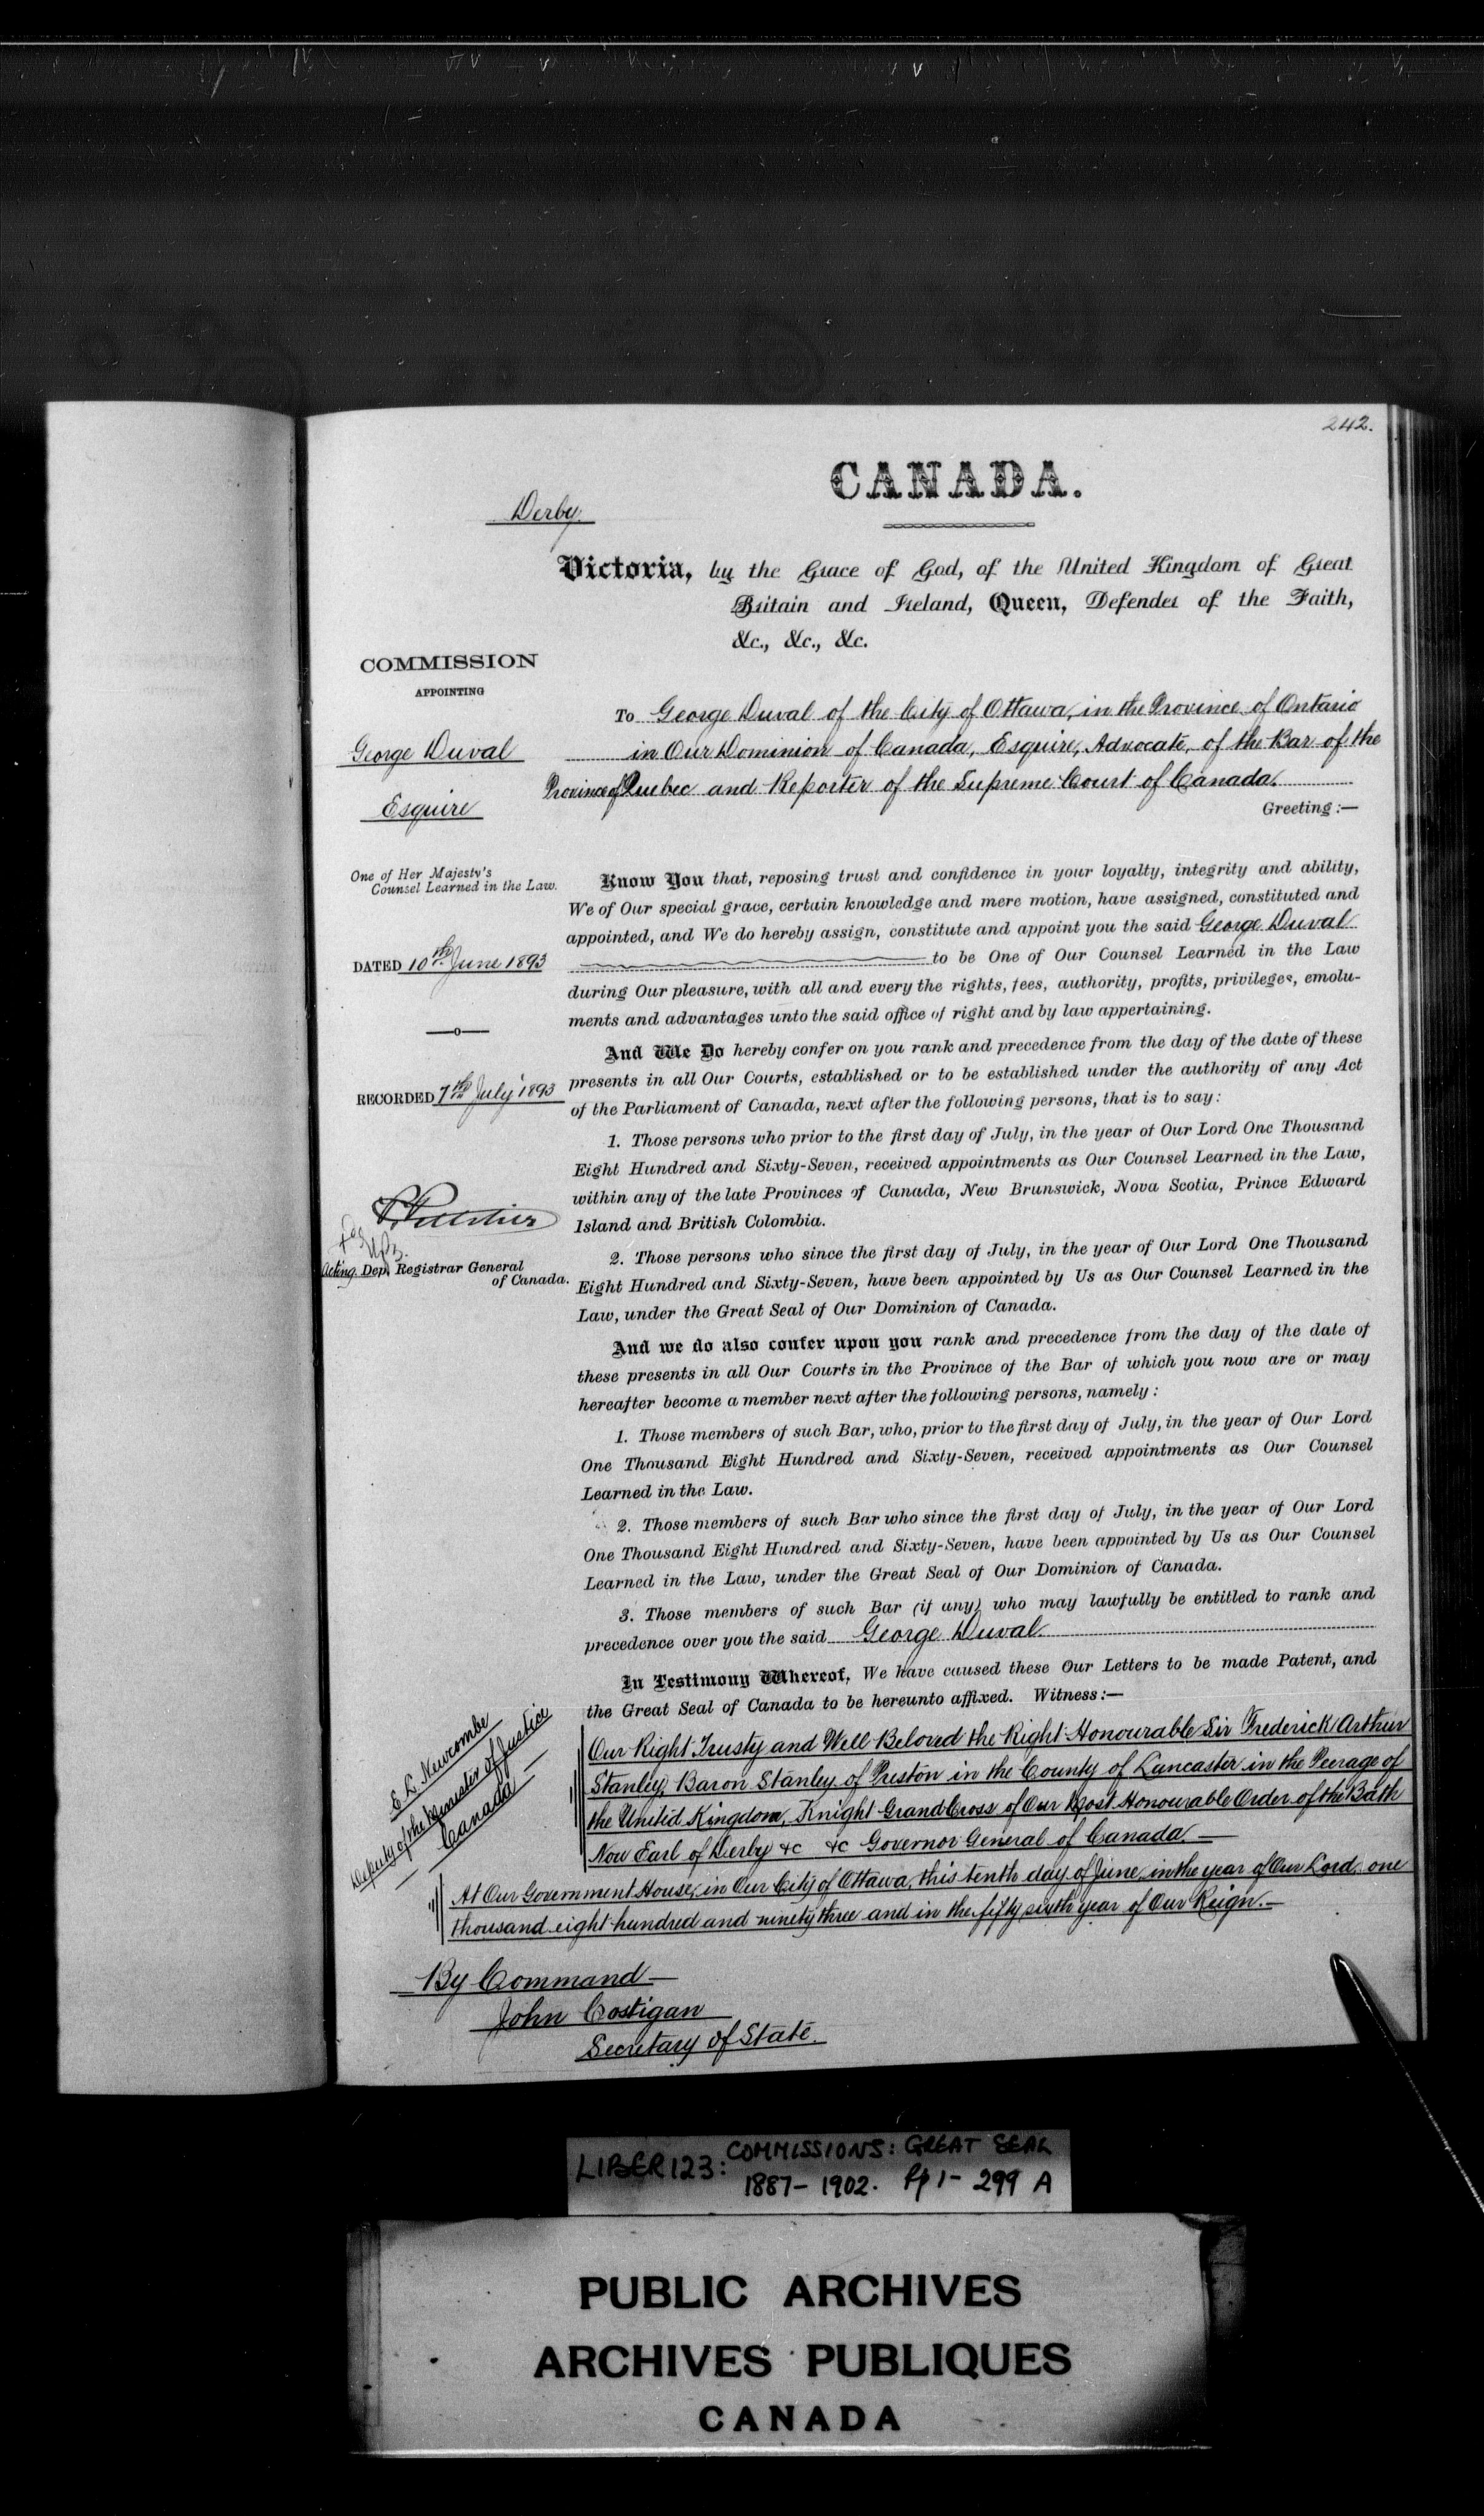 242.
CANADA.
Derby.
Victoria, by the Grace of God, of the United Kingdom of Great
Britain and Ireland, Queen, Defender of the Faith,
&c., &c., &c.
COMMISSION
APPOINTING
George Duval
Esquire
One of Her Majesty's
Counsel Learned in the Law.
DATED 10th June 1893
RECORDED 7th July 1893
Acting Dep. Registrar General
of Canada.
To George Duval of the City of Ottawa, in the Province of Ontario
in Our Dominion of Canada, Esquire, Advocate, of the Bar of the
Province of Quebec and Reporter of the Supreme Court of Canada.
Greeting:—
Know You that, reposing trust and confidence in your loyalty, integrity and ability,
We of Our special grace, certain knowledge and mere motion, have assigned, constituted and
appointed, and We do hereby assign, constitute and appoint you the said George Duval
to be One of Our Counsel Learned in the Law
during Our pleasure, with all and every the rights, fees, authority, profits, privileges, emolu-
ments and advantages unto the said office of right and by law appertaining.
And We Do hereby confer on you rank and precedence from the day of the date of these
presents in all Our Courts, established or to be established under the authority of any Act
of the Parliament of Canada, next after the following persons, that is to say:
1. Those persons who prior to the first day of July, in the year of Our Lord One Thousand
Eight Hundred and Sixty-Seven, received appointments as Our Counsel Learned in the Law,
within any of the late Provinces of Canada, New Brunswick, Nova Scotia, Prince Edward
Island and British Colombia.
2. Those persons who since the first day of July, in the year of Our Lord One Thousand
Eight Hundred and Sixty-Seven, have been appointed by Us as Our Counsel Learned in the
Law, under the Great Seal of Our Dominion of Canada.
And we do also confer upon you rank and precedence from the day of the date of
these presents in all Our Courts in the Province of the Bar of which you now are or may
hereafter become a member next after the following persons, namely:
1. Those members of such Bar, who, prior to the first day of July, in the year of Our Lord
One Thousand Eight Hundred and Sixty-Seven, received appointments as Our Counsel
Learned in the Law.
2. Those members of such Bar who since the first day of July, in the year of Our Lord
One Thousand Eight Hundred and Sixty-Seven, have been appointed by Us as Our Counsel
Learned in the Law, under the Great Seal of Our Dominion of Canada.
3. Those members of such Bar (if any) who may lawfully be entitled to rank and
precedence over you the said George Duval
In Testimony Whereof, We have caused these Our Letters to be made Patent, and
the Great Seal of Canada to be hereunto affixed. Witness:—
E L Newcombe
Deputy of the Minister of Justice
Canada
Our Right Trusty and Well Beloved the Right Honourable Sir Frederick Arthur
Stanley, Baron Stanley of Preston in the County of Lancaster in the Peerage of
the United Kingdom, Knight Grand Cross of Our Most Honourable Order of the Bath
Now Earl of Derby &c &c Governor General of Canada.—
At Our Government House, in Our City of Ottawa, this tenth day of June, in the year of Our Lord, one
thousand eight hundred and ninety three and in the fifty sixth year of Our Reign.—
By Command—
John Costigan
Secretary of State.
LIBER 123: COMMISSIONS: GREAT SEAL
1887-1902. pp 1-299 A
PUBLIC ARCHIVES
ARCHIVES PUBLIQUES
CANADA